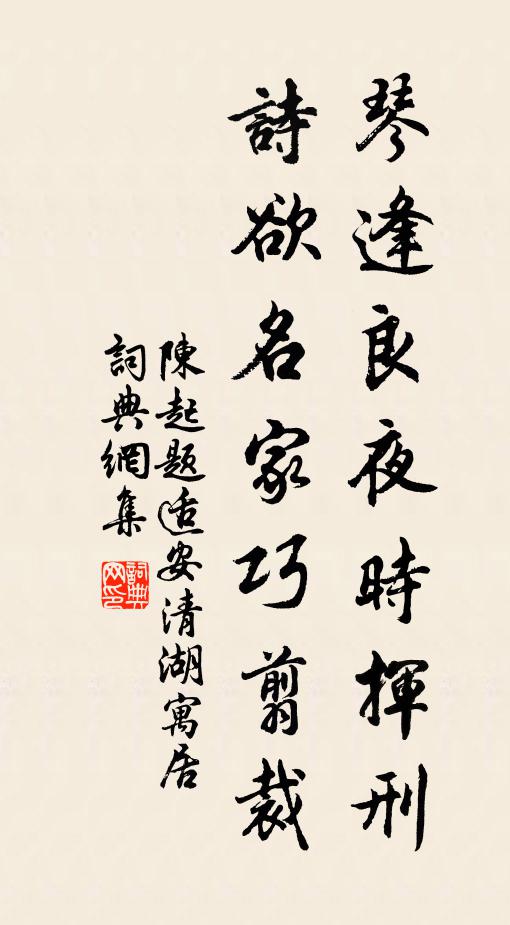 琴逢良夜時揮刑
詩欲名家巧剪裁
陳起题适安清湖寓居
詞典網集
詞典网印